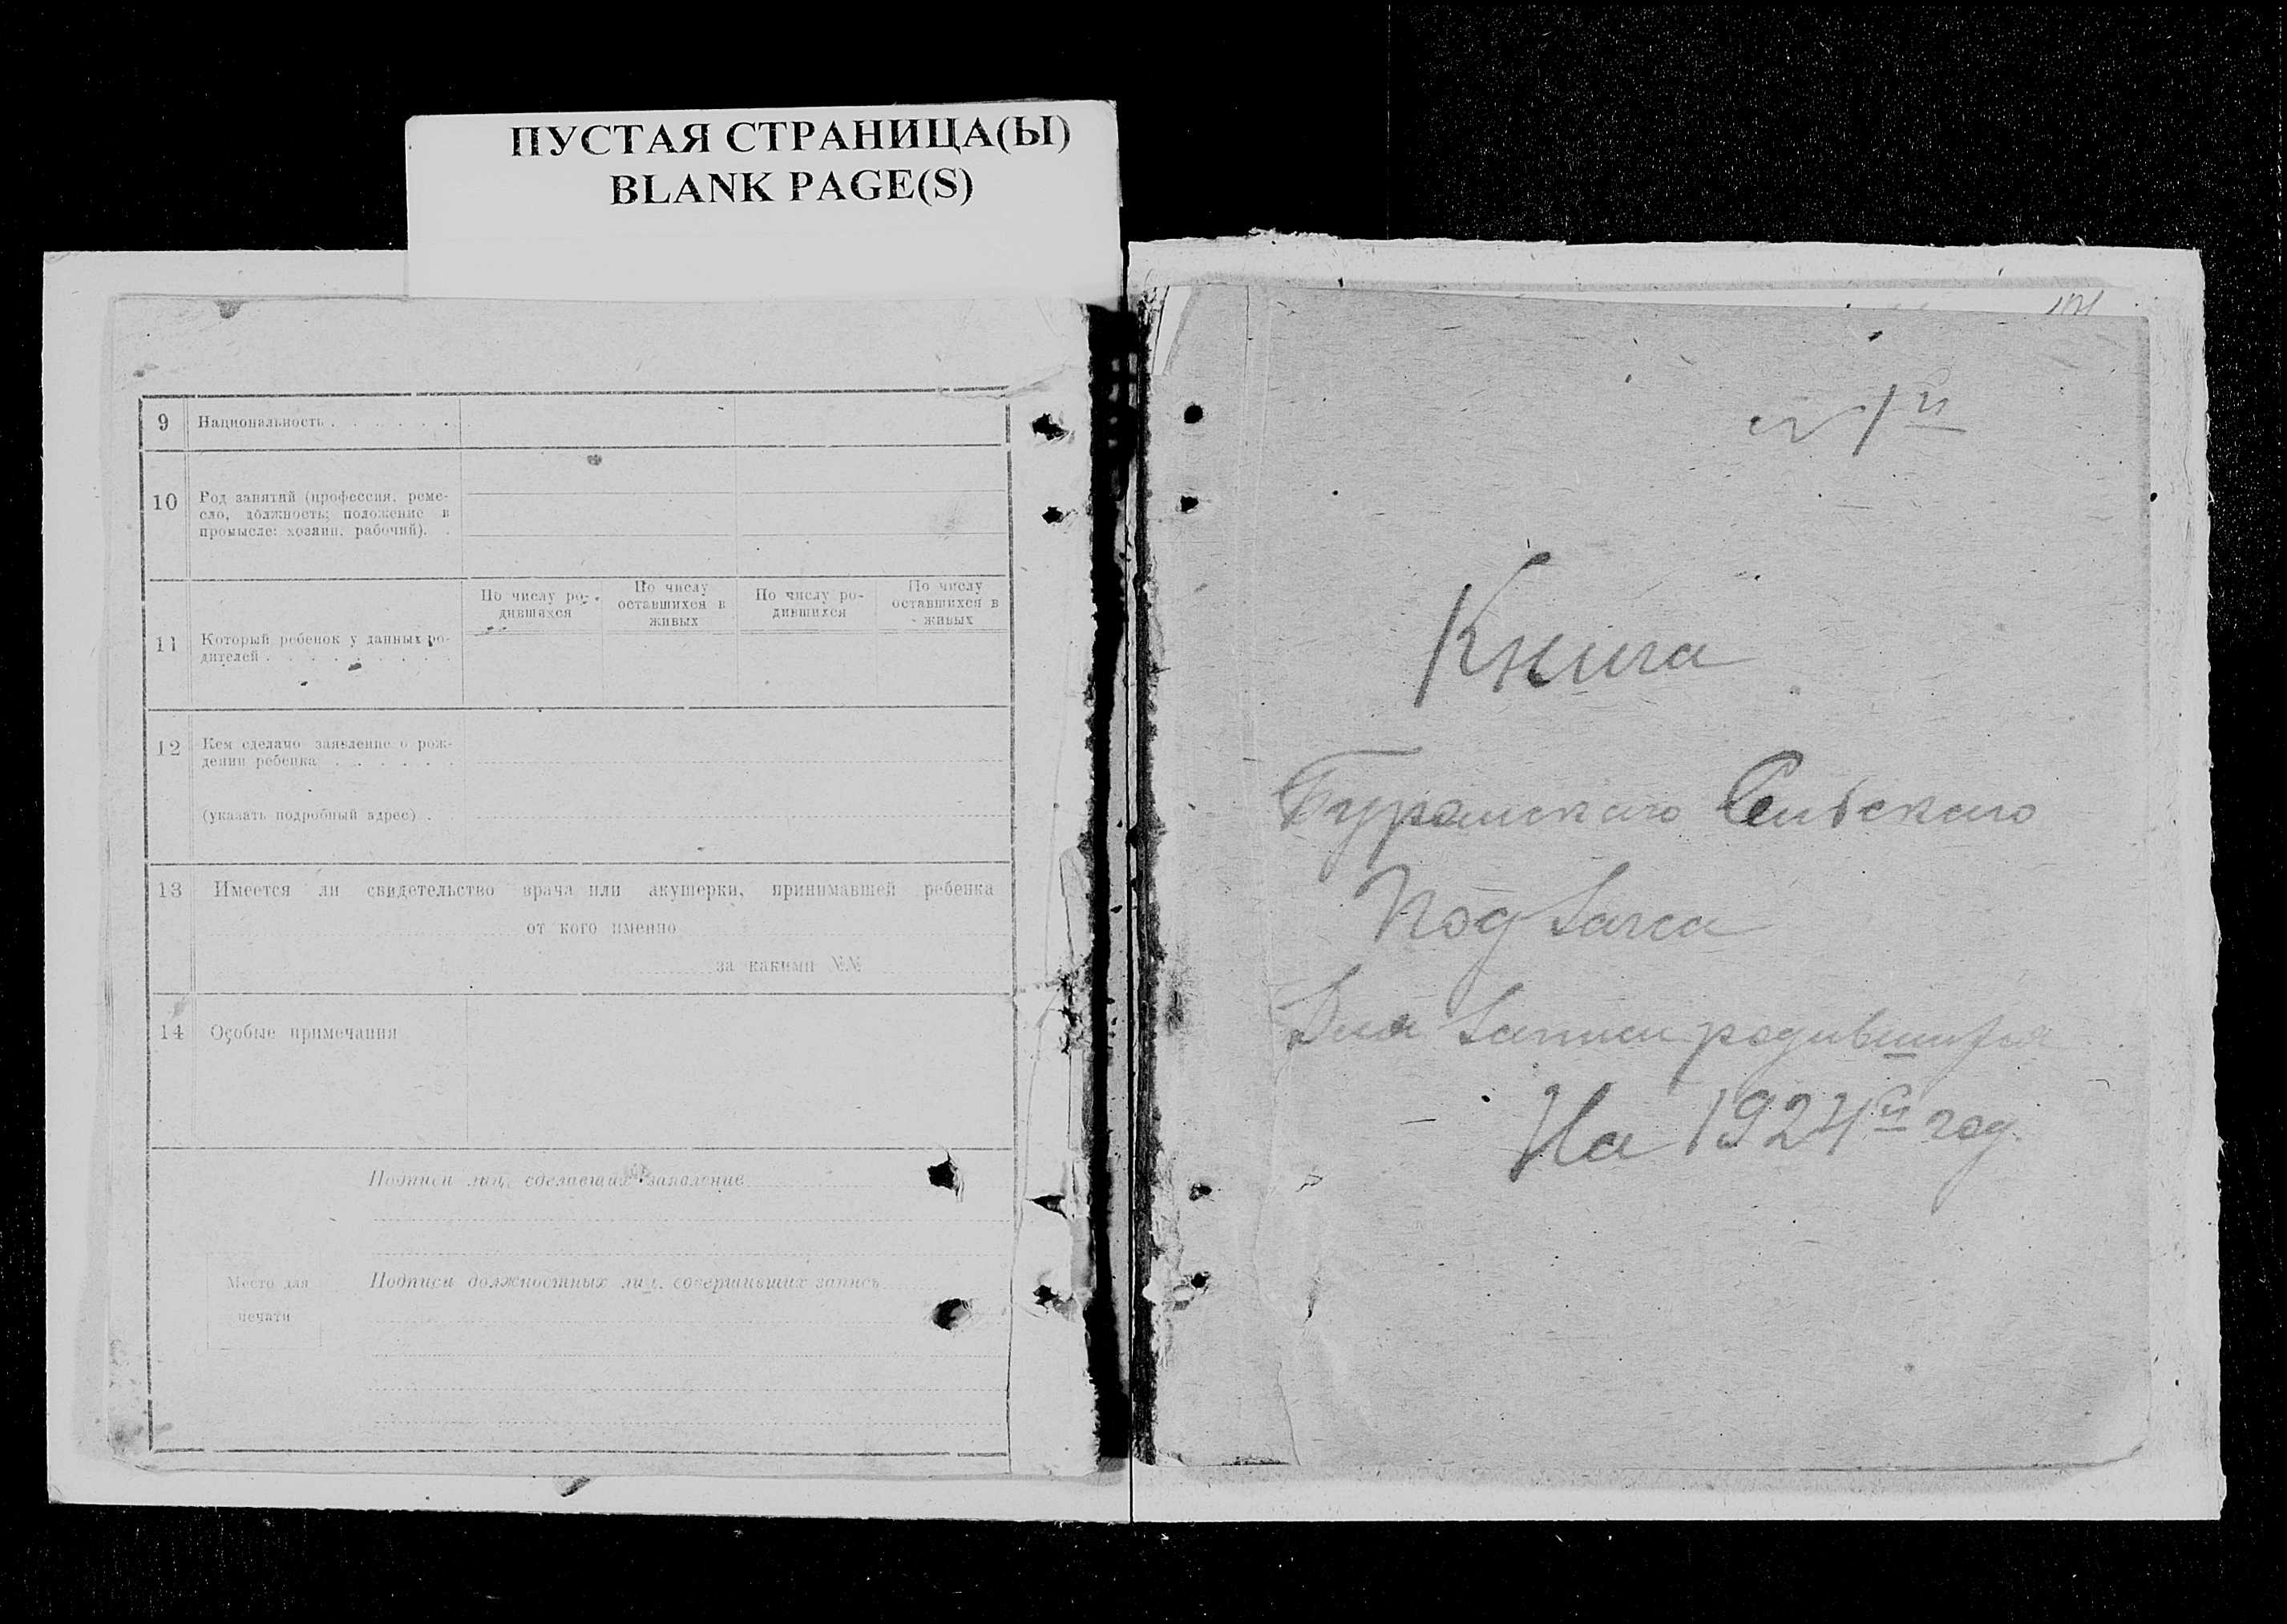 ПУСТАЯ СТРАНИЦА(Ы)
BLANK PAGE(S)
9 Национальность . . . . . .
10 Род занятий (профессия, реме-
сло, должность; положение в
промысле: хозяин, рабочий). .
По числу ро-
дившихся
По числу
оставшихся в
живых
По числу ро-
дившихся
По числу
оставшихся в
живых
11 Который ребенок у данных ро-
дителей . . . . . . . . .
12 Кем сделано заявление о рож-
дении ребенка . . . . . .
(указать подробный адрес) .
13 Имеется ли свидетельство врача или акушерки, принимавшей ребенка
от кого именно
за какими №№
14 Особые примечания
Подписи лиц, сделавших заявление
Место для
печати
Подписи должностных лиц, совершивших запись
1й
Книга
Сельского
Под Загса
Для Записи родившихся
На 1924й год.